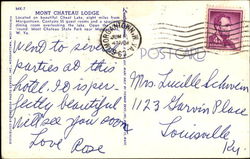 MK.7
MONT CHATEAU LODGE
Located on beautiful Cheat Lake, eight miles from
Morgantown. Contains 55 guest rooms and a spacious
dining room overlooking the lake. Open the year
'round. Mont Chateau State Park near Morgantown,
W. Va.
POSTCARD
MORGANTOWN
JUN
Went to several
parties at this
hotel. It is per-
fectly beautiful
will see you soon
Love Rose
Mrs. Lucille Schwein
1123 Garvin Place
Louisville
Ky.